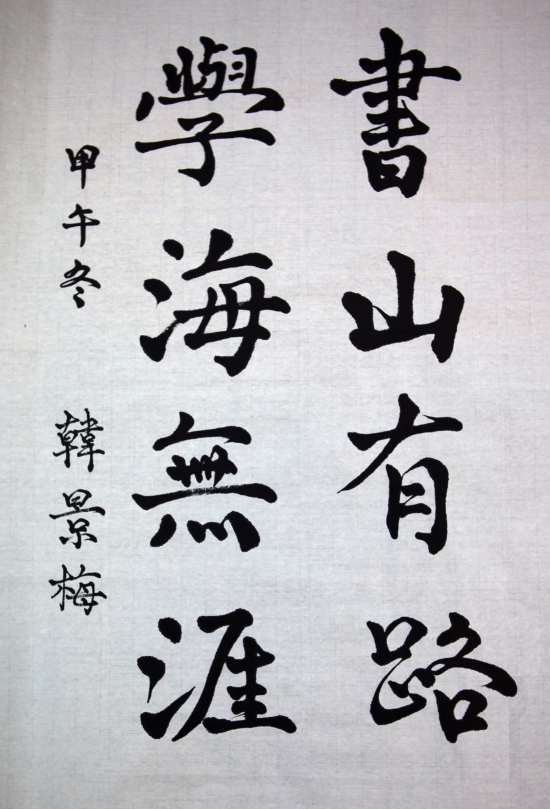 書山有路
學海無涯
甲午冬 韓景梅